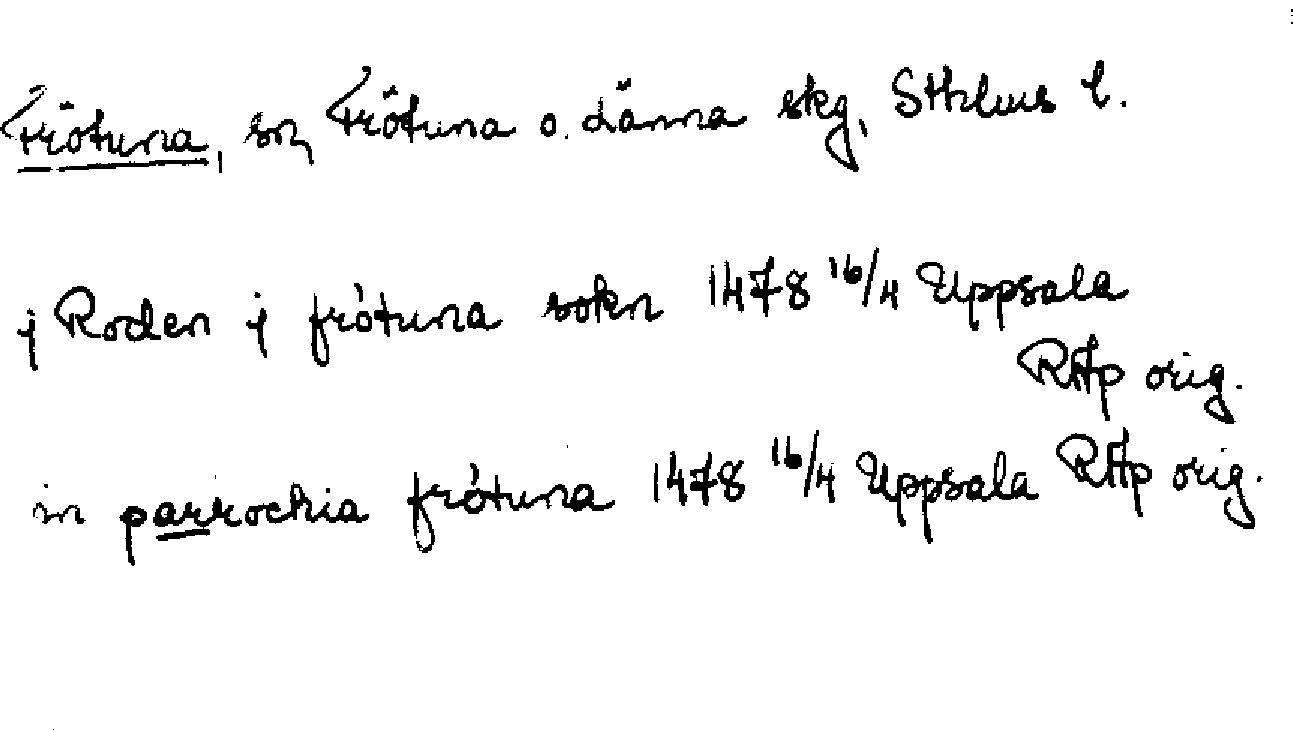 Frötuna, sn, Frötuna o. Länna skg, Sthlms l.
j Roden j frótuna sokn 1478 16/4 Uppsala
RAp orig.
in parrochia frótuna 1478 16/4 Uppsala RAp orig.